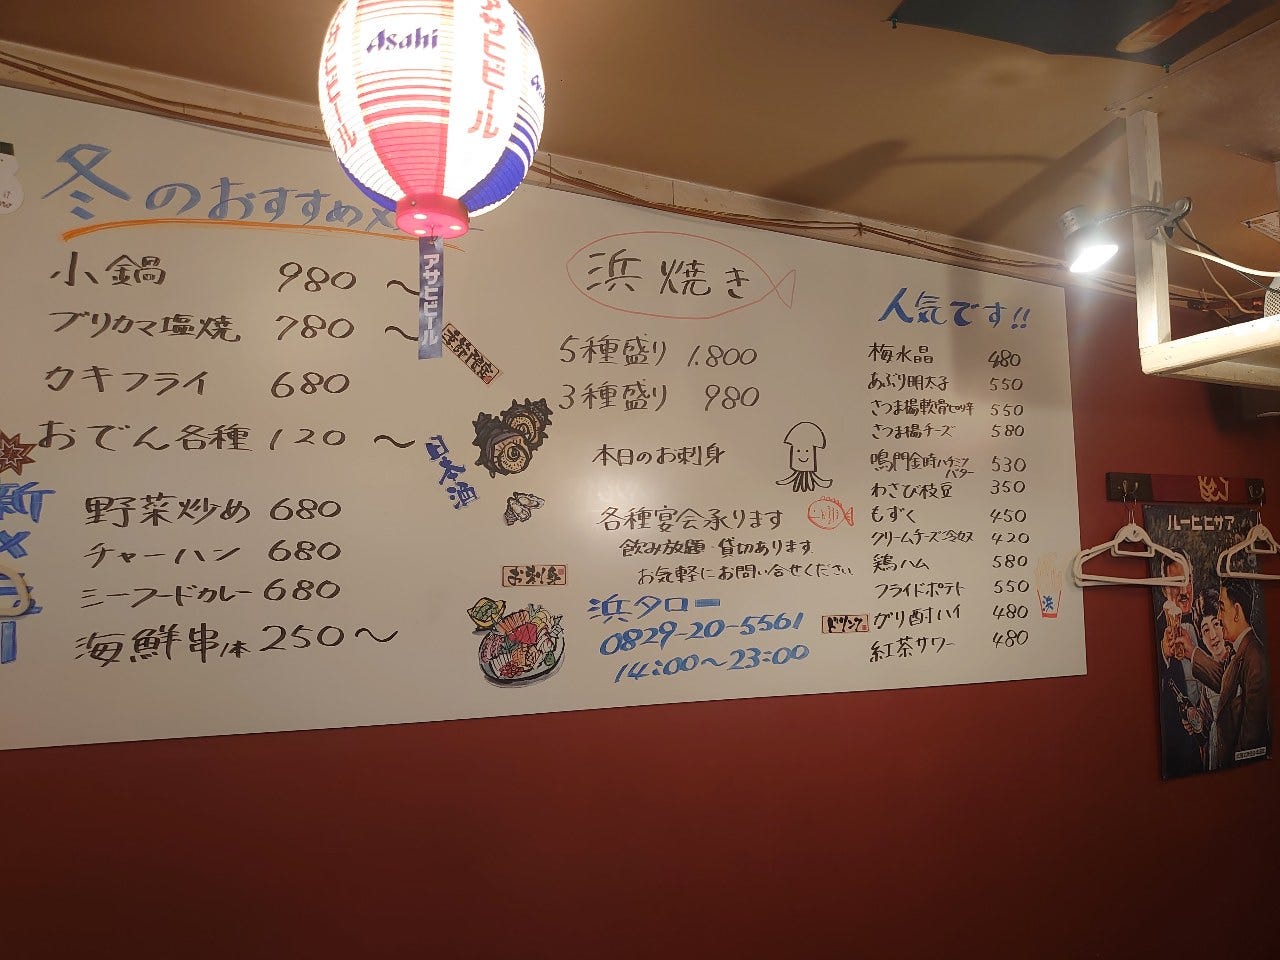 Asahi
アサヒビール
アサヒビール
アサヒビール
冬のおすすめメ
小鍋 980 〜
ブリカマ塩焼 780 〜
カキフライ 680
おでん各種 120 〜
新
メ
野菜炒め 680
チャーハン 680
シーフードカレー 680
海鮮串1本 250〜
季節限定
日本酒
お刺身
浜焼き
5種盛り 1.800
3種盛り 980
本日のお刺身
各種宴会承ります
飲み放題・貸切あります
お気軽にお問い合せください
浜タロー
0829-20-5561
14:00〜23:00
人気です!!
梅水晶 480
あぶり明太子 550
さつま揚軟骨ピリ辛 550
さつま揚チーズ 580
鳴門金時ハチミツバター 530
わさび枝豆 350
もずく 450
クリームチーズ冷奴 420
鶏ハム 580
フライドポテト 550
ドリンク
ガリ酎ハイ 480
紅茶サワー 480
浜
アサヒビール